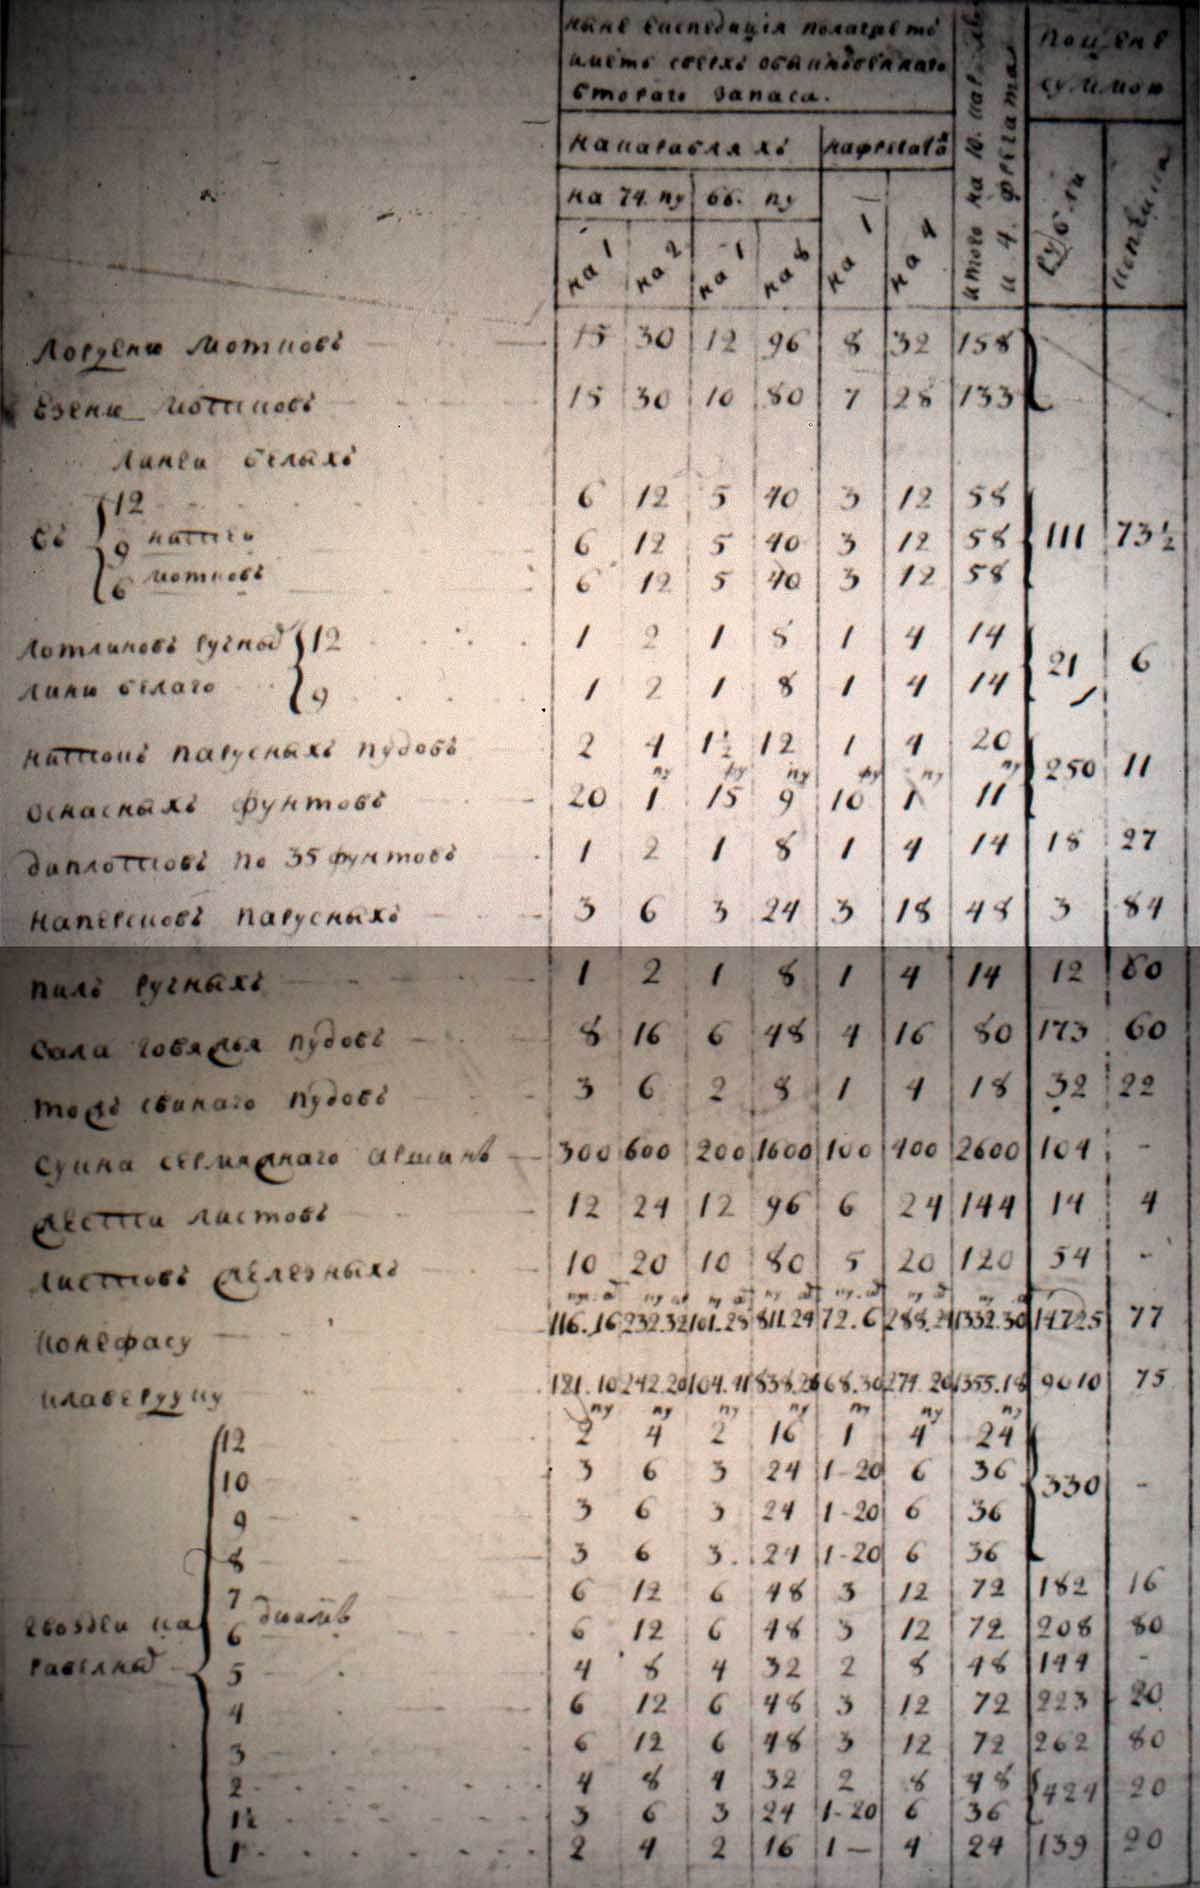 ныне експедиція полагаетъ
иметь сверхъ обыкновеннаго
втораго запаса.
итого на 10. караблей и 4. фрегата
по цене суммою
на карабляхъ
на фрегатъ
на 74. пу 66. пу
на 1 на 2 на 1 на 8 на 1 на 4 рубли копеики
Логлени мотковъ 15 30 12 96 8 32 158
Езени мотковъ 15 30 10 80 7 28 133
Линеи белыхъ
12 6 12 5 40 3 12 58
въ 9 нитеи 6 12 5 40 3 12 58 111 73½
6 мотковъ 6 12 5 40 3 12 58
Лотлиновъ ручныхъ 12 1 2 1 8 1 4 14
лини белаго 9 1 2 1 8 1 4 14 21 6
нитокъ парусныхъ пудовъ 2 4 1½ 12 1 4 20
пу фу пу фу пу пу 250 11
оснасныхъ фунтовъ 20 1 15 9 10 1 11
диплотовъ по 35 фунтовъ 1 2 1 8 1 4 14 18 27
наперстковъ парусныхъ 3 6 3 24 3 18 48 3 84
пилъ ручныхъ 1 2 1 8 1 4 14 12 60
Сала говяжья пудовъ 8 16 6 48 4 16 80 173 60
тожъ свинаго пудовъ 3 6 2 8 1 4 18 32 22
Сукна сермяжнаго аршинъ 300 600 200 1600 100 400 2600 104 -
жести листовъ 12 24 12 96 6 24 144 14 4
листовъ железныхъ 10 20 10 80 5 20 120 54 -
конефасу 116.16 232.32 101.28 811.24 72.6 288.24 1332.30 14725 77
клавердуку 121.10 242.20 104.41 838.26 68.30 274.20 1355.18 9010 75
пу пу пу пу пу пу пу
12 2 4 2 16 1 4 24
10 3 6 3 24 1-20 6 36 330 -
9 3 6 3 24 1-20 6 36
8 3 6 3. 24 1-20 6 36
7 6 12 6 48 3 12 72 182 16
гвоздеи ка 6 дюимъ 6 12 6 48 3 12 72 208 80
рабелныхъ 5 4 8 4 32 2 8 48 144 -
4 6 12 6 48 3 12 72 223 20
3 6 12 6 48 3 12 72 262 80
2 4 8 4 32 2 8 48 424 20
1½ 3 6 3 24 1-20 6 36
1 2 4 2 16 1 — 4 24 139 20